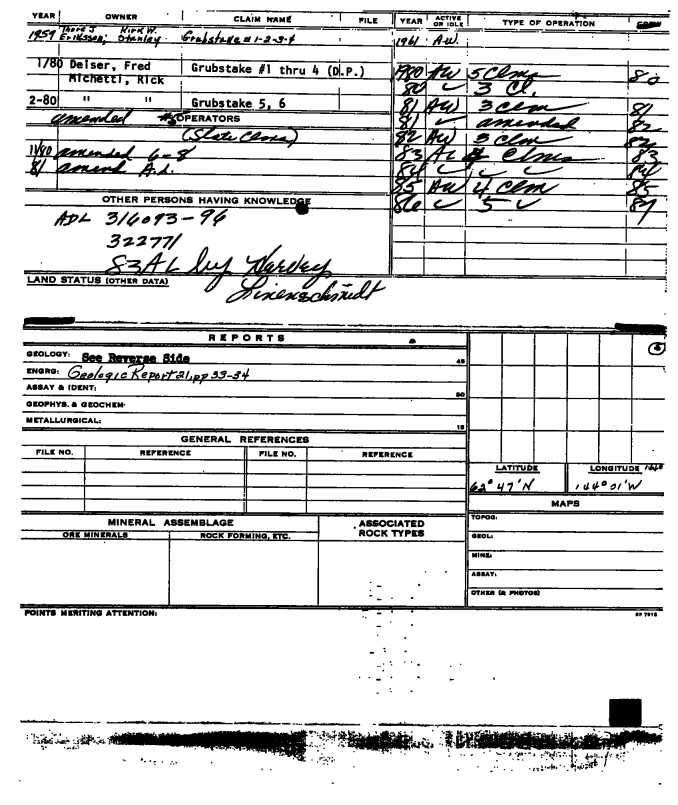 YEAR OWNER CLAIM NAME FILE YEAR ACTIVE OR IDLE TYPE OF OPERATION
1957 Thore J. Eriksson; Kirk W. Stanley Grubstake # 1-2-3-4 1961 AW.
1/80 Deiser, Fred Grubstake #1 thru 4 (D.P.) 1980 AW 5 Clms 80
Michetti, Rick 80 ✓ 3 Cl.
2-80 " " Grubstake 5, 6 81 AW 3 clm 81
amended OPERATORS 81 ✓ amended 82
(State Clms) 82 AW 3 clm 82
11/80 amended 6-8 83 AL Clms 83
81 amend A.L. 84 ✓ ✓ ✓ 84
85 AW 4 clm 85
OTHER PERSONS HAVING KNOWLEDGE 86 ✓ 5 ✓ 87
ADL 316093-96
322771
83AL by Harvey
LAND STATUS (OTHER DATA) Linenschmidt
REPORTS
GEOLOGY: See Reverse Side 45
ENGRG: Geologic Report 21, pp 33-34
ASSAY & IDENT: 30
GEOPHYS. & GEOCHEM.
METALLURGICAL: 15
GENERAL REFERENCES
FILE NO. REFERENCE FILE NO. REFERENCE
LATITUDE LONGITUDE
62° 47' N 144° 01' W
MAPS
MINERAL ASSEMBLAGE ASSOCIATED ROCK TYPES TOPOG:
ORE MINERALS ROCK FORMING, ETC. GEOL:
MINE:
ASSAY:
OTHER (& PHOTOS)
POINTS MERITING ATTENTION: